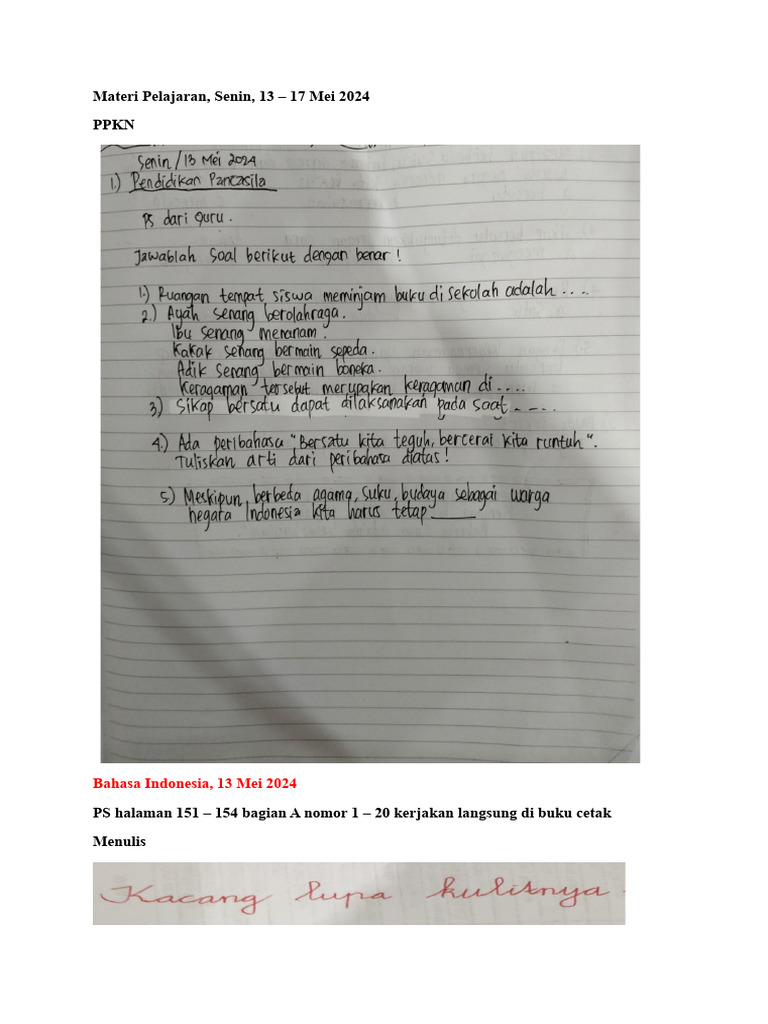 Materi Pelajaran, Senin, 13 – 17 Mei 2024
PPKN
Senin / 13 Mei 2024
1.) Pendidikan Pancasila
PS dari Guru.
Jawablah soal berikut dengan benar !
1.) Ruangan tempat siswa meminjam buku di sekolah adalah ....
2.) Ayah senang berolahraga.
Ibu senang menanam.
Kakak senang bermain sepeda.
Adik senang bermain boneka.
Keragaman tersebut merupakan keragaman di ....
3) Sikap bersatu dapat dilaksanakan pada saat ....
4.) Ada peribahasa "Bersatu kita teguh, bercerai kita runtuh".
Tuliskan arti dari peribahasa diatas !
5.) Meskipun berbeda agama, suku, budaya sebagai warga
negara Indonesia kita harus tetap ______
Bahasa Indonesia, 13 Mei 2024
PS halaman 151 – 154 bagian A nomor 1 – 20 kerjakan langsung di buku cetak
Menulis
Kacang lupa kulitnya.